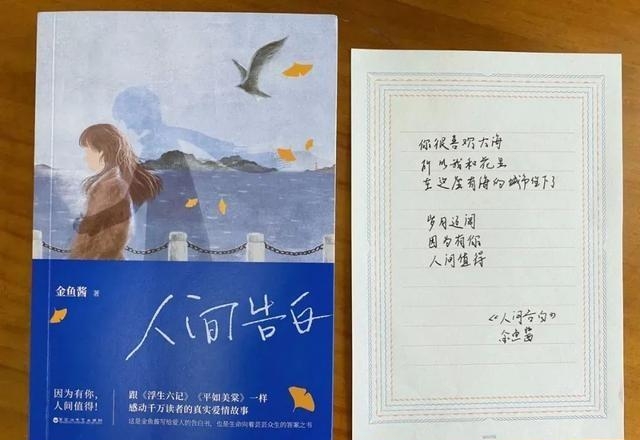 金鱼酱 著
人间告白
因为有你，
人间值得！
跟《浮生六记》《平如美棠》一样
感动千万读者的真实爱情故事
这是金鱼酱写给爱人的告白书，也是生命向着芸芸众生的答案之书
你很喜欢大海
所以我和花里
在这座有海的城市住下了
岁月辽阔
因为有你
人间值得
《人间告白》
金鱼酱